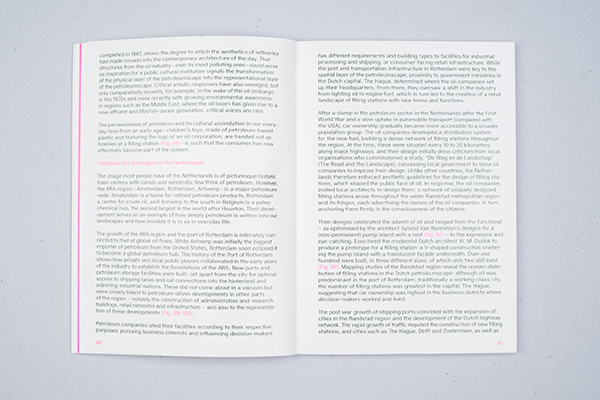 completed in 1967, shows the degree to which the aesthetics of refineries
had made inroads into the contemporary architecture of the day. That
structures from the oil industry – even its most polluting ones – could serve
as inspiration for a public cultural institution signals the transformation
of the physical layer of the petroleumscape into the representational layer
of the petroleumscape. Critical artistic responses have also emerged, but
only comparatively recently, for example, in the wake of the oil embargo
in the 1970s and more recently with growing environmental awareness.
In regions such as the Middle East, where the oil boom has given rise to a
new affluent and lifestyle-aware generation, critical voices are rare.
The pervasiveness of petroleum and its cultural assimilation in our every-
day lives from an early age – children's toys, made of petroleum-based
plastic and featuring the logo of an oil corporation, are handed out as
freebies at a filling station – is such that the consumer has now
effectively become part of the system.
Industrial Oil Landscapes in the Netherlands
The image most people have of the Netherlands is of picturesque historic
town centres with canals and windmills; few think of petroleum. However,
the ARA region – Amsterdam, Rotterdam, Antwerp – is a major petroleum
node: Amsterdam is a home for refined petroleum products, Rotterdam
a centre for crude oil, and Antwerp to the south in Belgium is a petro-
chemical hub, the second largest in the world after Houston. Their devel-
opment serves as an example of how deeply petroleum is written into our
landscapes and how invisible it is to us in everyday life.
The growth of the ARA region and the port of Rotterdam is intricately con-
nected to that of global oil flows. While Antwerp was initially the biggest
importer of petroleum from the United States, Rotterdam soon eclipsed it
to become a global petroleum hub. The history of the Port of Rotterdam
shows how private and local public players collaborated in the early years
of the industry to establish the foundations of the ARA. New ports and
petroleum storage facilities were built, set apart from the city for optimal
access to shipping lanes and rail connections into the hinterland and
adjoining industrial nations. These did not come about in a vacuum but
were closely linked to petroleum-driven developments in other parts
of the region – notably the construction of administrative and research
buildings, retail networks and infrastructure – and also to the representa-
tion of these developments
Petroleum companies sited their facilities according to their respective
purposes: pursuing business interests and influencing decision-makers
46
has different requirements and building types to facilities for industrial
processing and shipping, or consumer-facing retail infrastructure. While
the port and transportation infrastructure in Rotterdam were key to the
spatial layer of the petroleumscape, proximity to government ministries in
the Dutch capital, The Hague, determined where the oil companies set
up their headquarters. From there, they oversaw a shift in the industry
from lighting oil to engine fuel, which in turn led to the creation of a retail
landscape of filling stations with new forms and functions.
After a slump in the petroleum sector in the Netherlands after the First
World War and a slow uptake in automobile transport (compared with
the USA), car ownership gradually became more accessible to a broader
population group. The oil companies developed a distribution system
for the new fuel, building a dense network of filling stations throughout
the region. At the time, these were situated every 10 to 20 kilometres
along major highways, and their design initially drew criticism from local
organisations who commissioned a study, "De Weg en de Landschap"
(The Road and the Landscape), canvassing local government to force oil
companies to improve their design. Unlike other countries, the Nether-
lands therefore enforced aesthetic guidelines for the design of filling sta-
tions, which shaped the public face of oil. In response, the oil companies
invited local architects to design them: a network of uniquely designed
filling stations arose throughout the wider Randstad metropolitan region
and its fringes, each advertising the names of the oil companies, in turn
anchoring them firmly in the consciousness of the citizens.
Their designs celebrated the advent of oil and ranged from the functional
– as epitomised by the architect Sybold Van Ravesteyn's designs for a
(non-permanent) pump island with a roof – to the expressive and
eye-catching. Esso hired the modernist Dutch architect W. M. Dudok to
produce a prototype for a filling station: a V-shaped construction shelter-
ing the pump island with a translucent façade underneath. Over one
hundred were built, in three different sizes, of which only two still exist
Mapping studies of the Randstad region reveal the uneven distri-
bution of filling stations in the Dutch petroleumscape: although oil was
predominant in the port of Rotterdam, traditionally a working-class city,
the number of filling stations was greatest in the capital, The Hague,
suggesting that car ownership was highest in the business districts where
decision-makers worked and lived.
The post-war growth of shipping ports coincided with the expansion of
cities in the Randstad region and the development of the Dutch highway
network. The rapid growth of traffic required the construction of new filling
stations, and cities such as The Hague, Delft and Zoetermeer, as well as
47